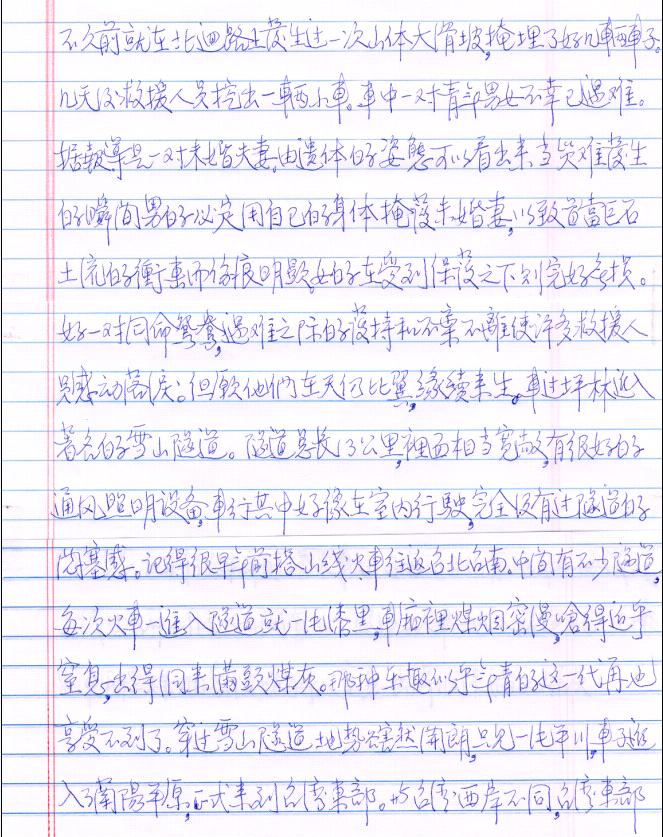 不久前就在北迴路上發生过一次山体大滑坡,掩埋了好几輛車子。
几天后救援人员挖出一輛小車。車中一对青年男女不幸已遇难。
据報導是一对未婚夫妻,由遗体的姿態可以看出来当災难發生
的瞬间男的必定用自己的身体掩護未婚妻,以致首當巨石
土流的衝擊而傷痕明顯,女的在受到保護之下則完好無损。
好一对同命鴛鴦,遇难之际的護持和不棄不離使许多救援人
員感动落淚。但願他們在天何比翼,缘續来生。車过坪林近入
著名的雪山隧道。隧道总长13公里,裡面相当宽敞,有很好的
通风照明设备,車行其中好像在室内行駛,完全没有过隧道的
闭塞感。记得很早年前搭山线火車往返台北台南。中间有不少隧道,
每次火車一進入隧道就一片漆黑,車廂裡煤烟密漫,嗆得近乎
窒息,出得洞来滿頭煤灰。那种乐趣似乎年青的这一代再也
享受不到了。穿过雪山隧道地勢豁然開朗,只见一片平川,車子進
入了蘭陽平原,正式来到台湾東部。与台湾西岸不同,台湾東部